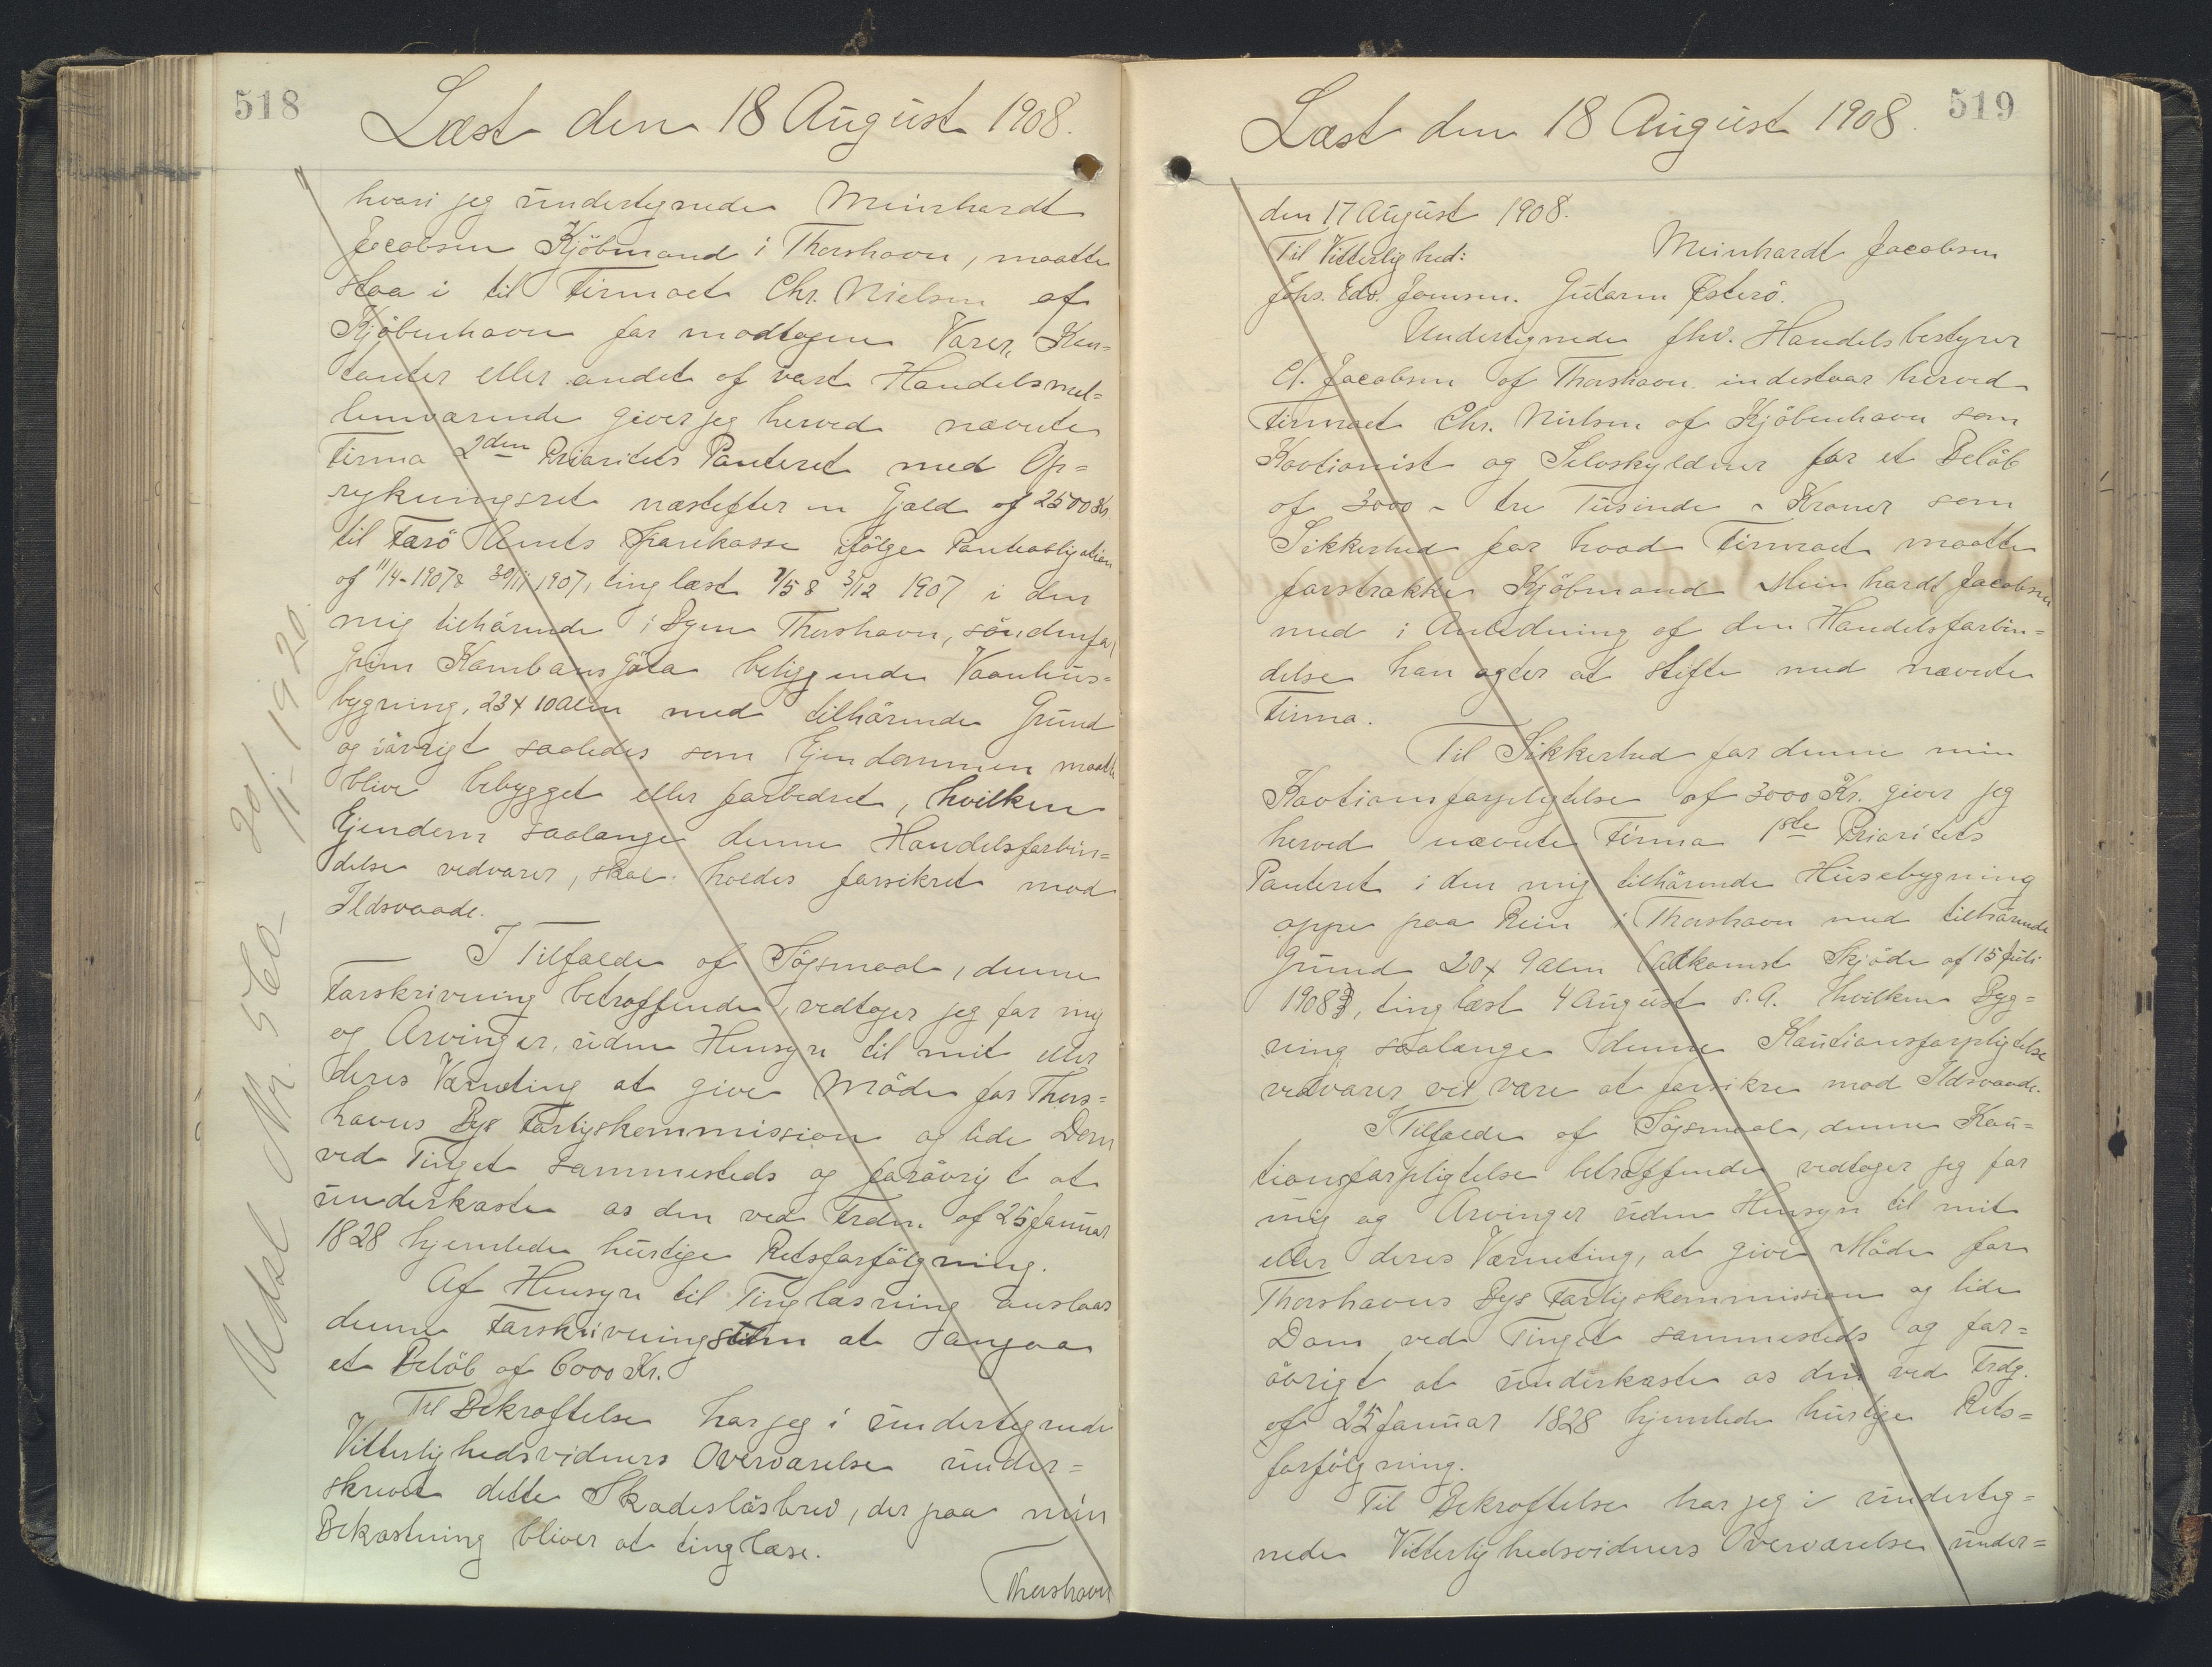 518
Læst den 18 August 1908.
hvori jeg undertegnede Meinhardt
Jacobsen Kjöbmand i Thorshavn, maatte
staa i til Firmaet Chr. Nielsen af
Kjöbenhavn for modtagne Varer, Kon=
tanter eller andet af vort Handelsmel=
lemværende giver jeg herved nævnte
Firma 2den Prioritets Panteret med Op=
rykningsret næstefter en Gjæld af 2500 Kr.
til Færö Amts Sparekasse ifölge Panteobligation
af 11/4-1907 & 30/11 1907, tinglæst 7/5 & 3/12 1907 i den
mig tilhörende i Byen Thorshavn, söndenfor
Grim Kambans Göta beliggende Vaanhus=
bygning, 23 x 10 Alen med tilhörende Grund
og iövrigt saaledes som Ejendommen maatte
blive bebygget eller forbedret, hvilken
Ejendom saalænge denne Handelsforbin=
delse vedvarer, skal holdes forsikret mod
Ildsvaade.
I Tilfælde af Sögsmaal, denne
Forskrivning betræffende, vedtager jeg for mig
og Arvinger, uden Hensyn til mit eller
deres Værneting at give Möde for Thors=
havns Bys Forligskommission og lide Dom
ved Tinget sammesteds og forövrigt at
underkaste os den ved Frdn. af 25 Januar
1828 hjemlede hurtige Retsforfölgning.
Af Hensyn til Tinglæsning anslaas
denne Forskrivning til at angaa
et Belöb af 6000 Kr.
Til Bekræftelse har jeg i undertegnede
Vitterlighedsvidners Overværelse under=
skrevet dette Skadeslösbrev, der paa min
Bekostning bliver at tinglæse.
Thorshavn
Udsl Nr. 560- 20/11-1920.
519
Læst den 18 August 1908.
den 17 August 1908.
Til Vitterlighed: Meinhardt Jacobsen
Johs. Edv. Joensen. Gutorm Österö.
Undertegnede fhv. Handelsbestyrer
A. Jacobsen af Thorshavn indestaar herved
Firmaet Chr. Nielsen af Kjöbenhavn som
Kavtionist og Selvskyldner for et Belöb
af 3000 - tre Tusinde - Kroner som
Sikkerhed for hvad Firmaet maatte
forstrække Kjöbmand Meinhardt Jacobsen
med i Anledning af den Handelsforbin=
delse han agter at stifte med nævnte
Firma.
Til Sikkerhed for denne min
Kavtionsforpligtelse af 3000 Kr. giver jeg
herved nævnte Firma 1ste Prioritets
Panteret i den mig tilhörende Husebygning
oppe paa Rein i Thorshavn med tilhörende
Grund 20 x 9 Alen (Adkomst Skjöde af 15 Juli
1908, tinglæst 4 August s.A. hvilken Byg=
ning saalænge denne Kautionsforpligtelse
vedvarer vil være at forsikre mod Ildsvaade.
I Tilfælde af Sögsmaal, denne Kau=
tionsforpligtelse betræffende vedtager jeg for
mig og Arvinger uden Hensyn til mit
eller deres Værneting, at give Möde for
Thorshavns Bys Forligskommission og lide
Dom ved Tinget sammesteds og for=
övrigt at underkaste os den ved Frdg.
af 25 Januar 1828 hjemlede hurtige Rets=
forfölgning.
Til Bekræftelse har jeg i underteg=
nede Vitterlighedsvidners Overværelse under=